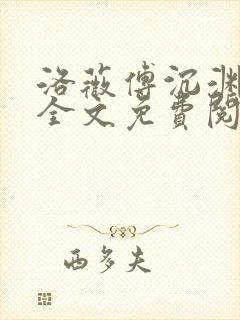 洛薇傅沉渊
全文免費閱
西多夫